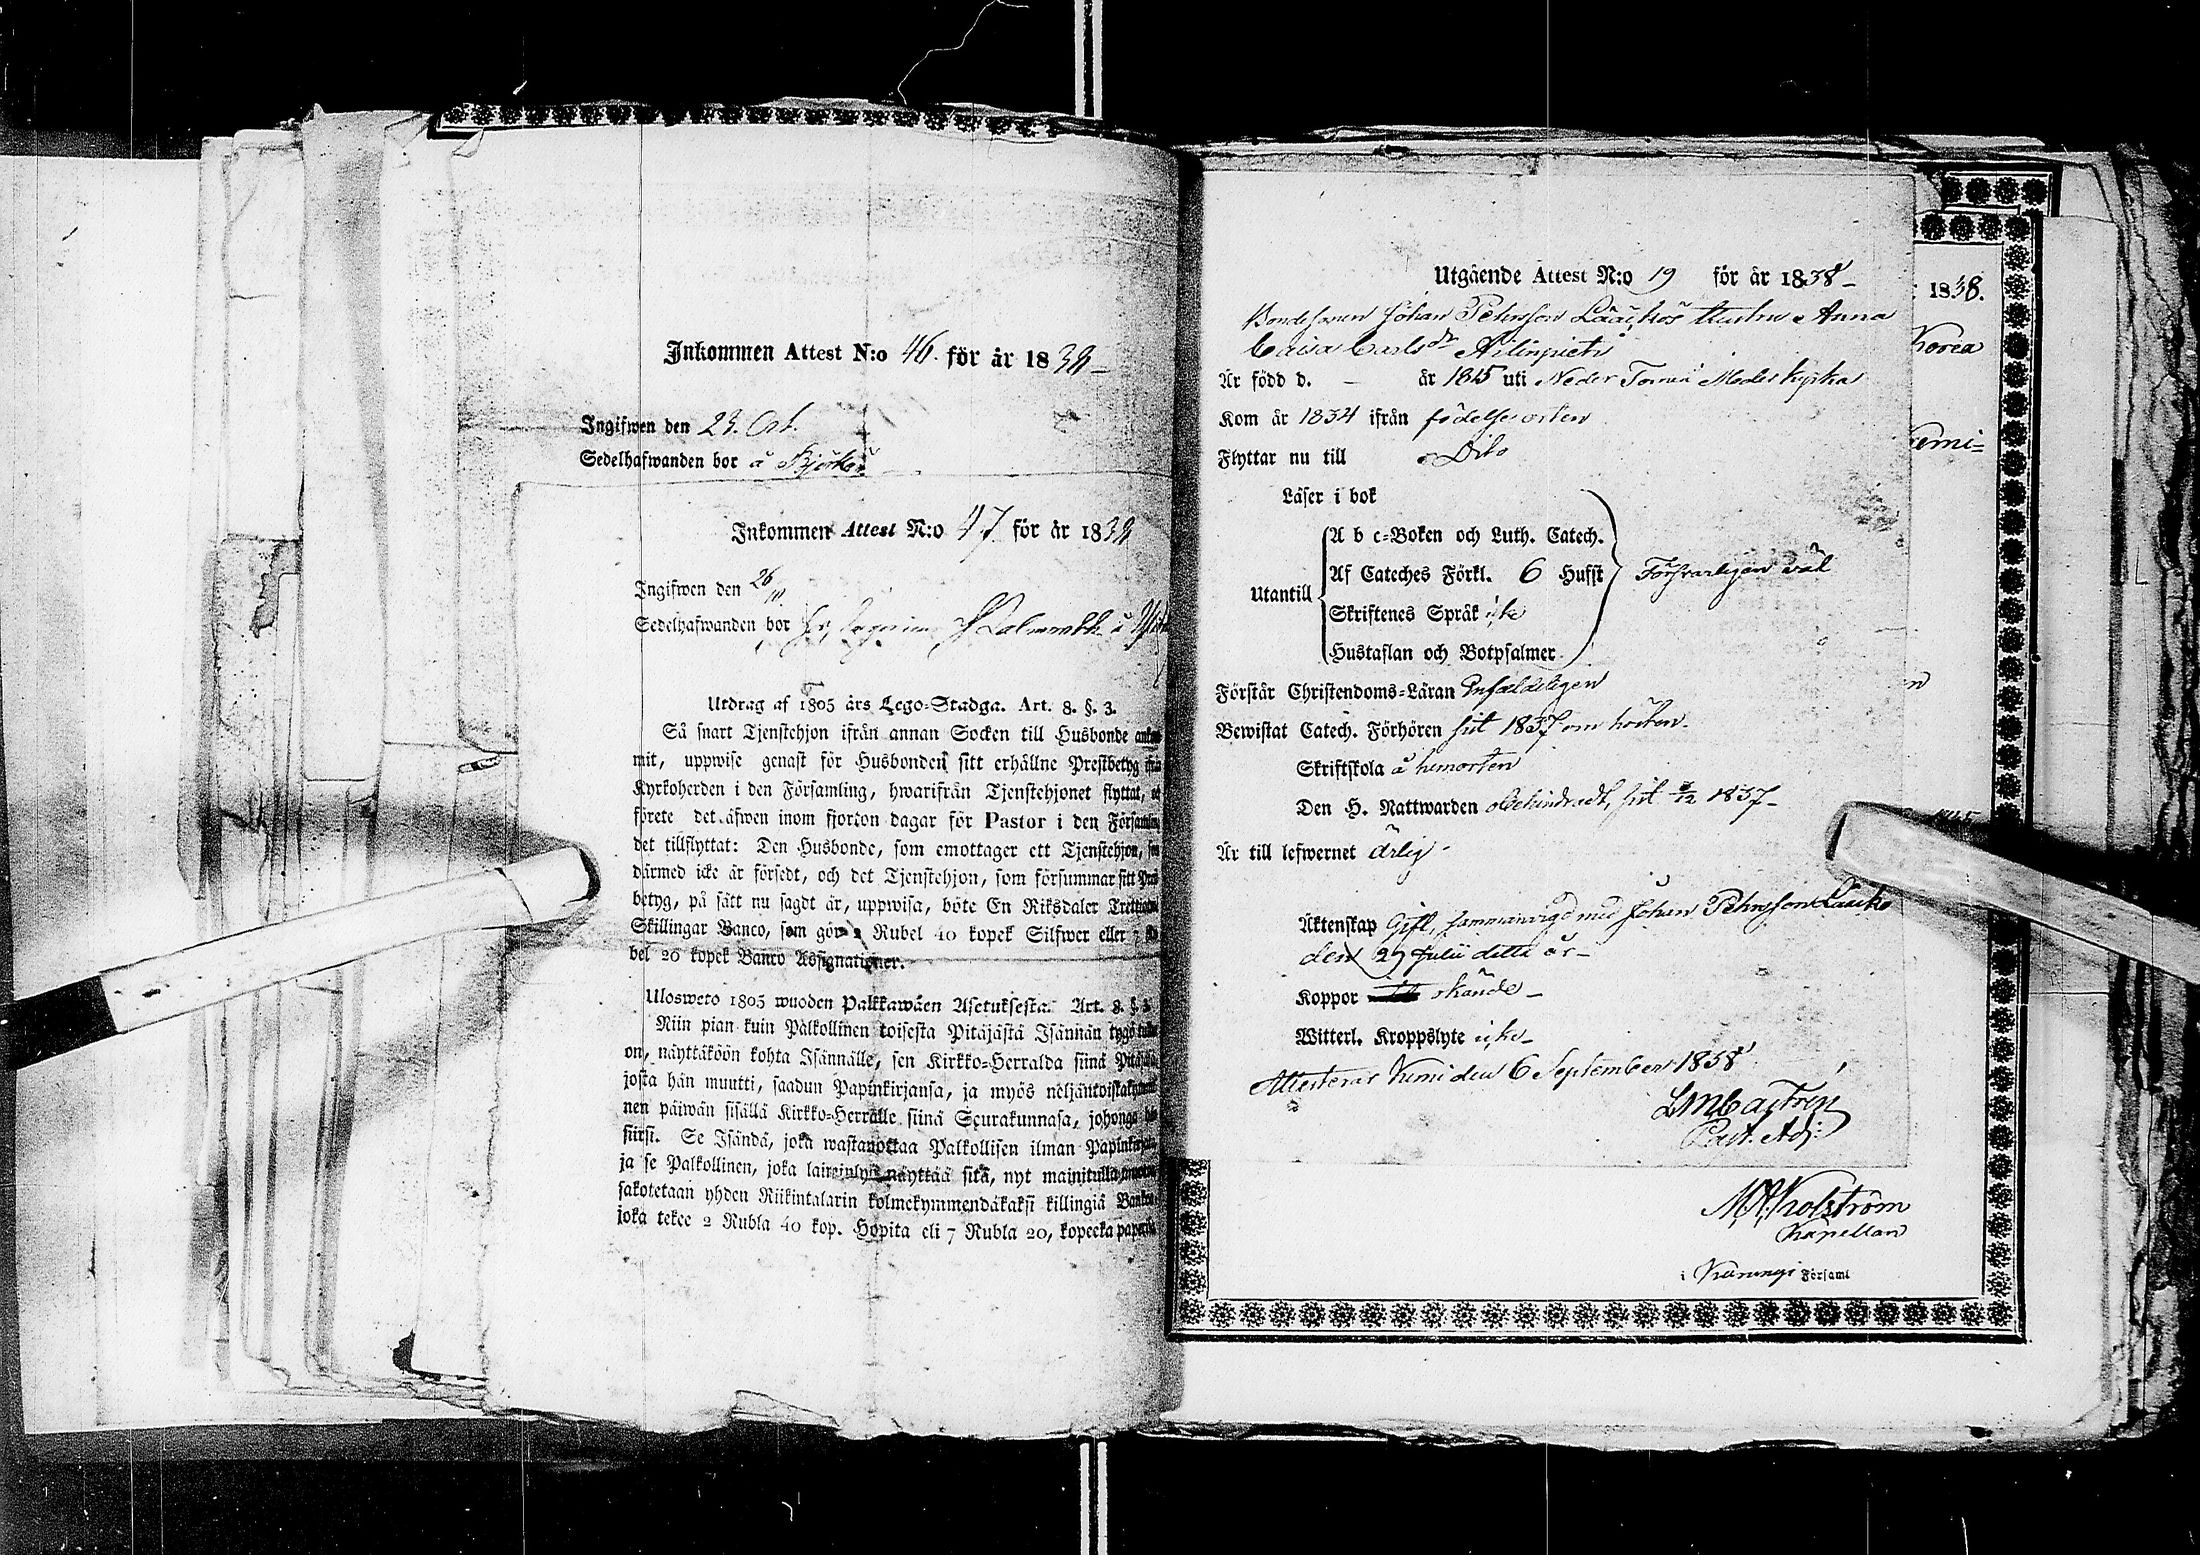 Inkommen Attest N:o 46. för år 1838
Ingifwen den 23. Oct.
Sedelhafwanden bor å Björkö
Inkommen Attest N:o 47. för år 1838
Ingifwen den 26/10.
Sedelhafwanden bor
Utdrag af 1805 års Lego-Stadga. Art. 8. §. 3.
Så snart Tjenstehjon ifrån annan Socken till Husbonde
mit, uppwise genast för Husbonden sitt erhållne Prestbetyg ifrån
Kyrkoherden i den Församling, hwarifrån Tjenstehjonet flyttat,
förete det äfwen inom fjorton dagar för Pastor i den Församling
det tillflyttat: Den Husbonde, som emottager ett Tjenstehjon, som
därmed icke är försedt, och det Tjenstehjon, som försummar sitt
betyg, på sätt nu sagdt är, uppwisa, böte En Riksdaler
Skillingar Banco, som gör 2 Rubel 40 kopek Silfwer eller 7
bel 20 kopek Banco Assignationer.
Ulosweto 1805 wuoden Palkkawäen Asetuksesta. Art. 8. §. 3
Niin pian kuin Palkollinen toisesta Pitäjästä Isännän tygö
on, näyttäköön kohta Isännälle, sen Kirkko-Herralda siinä
josta hän muutti, saadun Papinkirjansa, ja myös
nen päiwän sisällä Kirkko-Herralle siinä Seurakunnasa, johonga
siirsi. Se Isändä, joka wastanottaa Palkollisen ilman
ja se Palkollinen, joka näyttää sitä, nyt mainitulla
sakotetaan yhden Riikintalarin kolmekymmendäkaksi killingiä
joka tekee 2 Rubla 40 kop. Hopita eli 7 Rubla 20, kopecka
Utgående Attest N:o 19 för år 1838
Bondesonen Johan Pehrsson Lääkkös Hustru Anna
Caisa Carlsdr Ailinpieti
Är född d. – år 1815 uti Neder Torneå Moderkyrka
Kom år 1834 ifrån födelseorten
Flyttar nu till Dito
Läser i bok
A b c-Boken och Luth. Catech.
Af Cateches Förkl. 6 Hufst Försvarligen väl
Utantill
Skriftenes Språk icke
Hustaflan och Botpsalmer
Förstår Christendoms-Läran Enfaldeligen
Bewistat Catech. Förhören sist 1837 om hösten
Skriftskola å hemorten
Den H. Nattwarden obehindradt, sist /12 1837
Är till lefwernet Ärlig
Äktenskap Gift, sammanvigd med Johan Pehrsson Lääkkö
den 29 Julii detta år
Koppor okände
Witterl. Kroppslyte icke
Attesteras Kemi den 6 September 1838
L M Castrén
Past. Adj:
Kapellan
i Karungi Församl
1838.
Korea